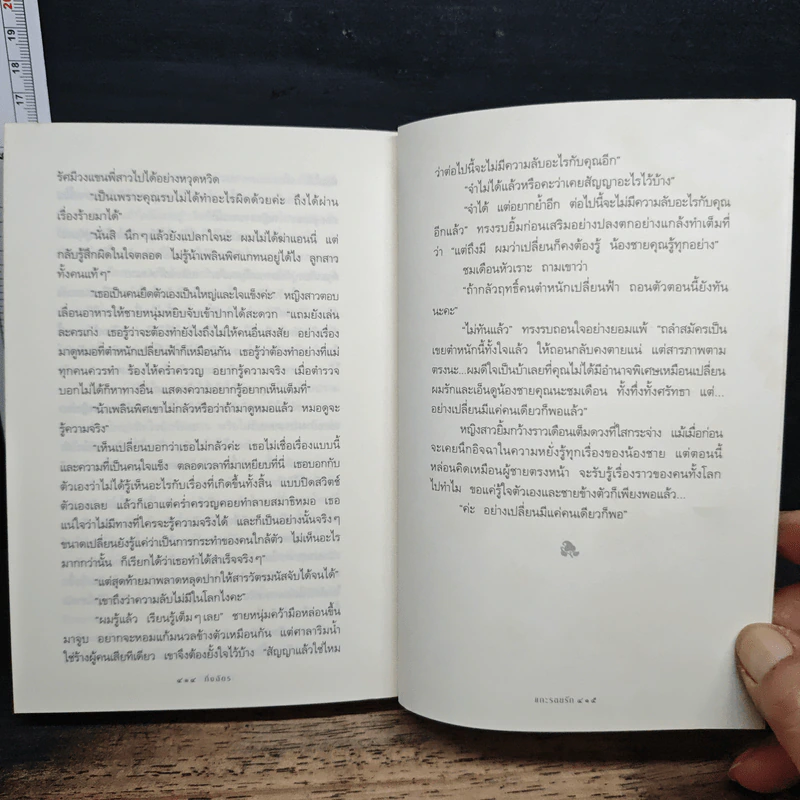 20
19
18
17
รัศมีวงแขนพี่สาวไปได้อย่างหวุดหวิด
"เป็นเพราะคุณรบไม่ได้ทำอะไรผิดด้วยค่ะ ถึงได้ผ่าน
เรื่องร้ายมาได้"
"นั่นสิ นึกๆ แล้วยังแปลกใจนะ ผมไม่ได้ฆ่าแอนนี่ แต่
กลับรู้สึกผิดในใจตลอด ไม่รู้น้าเพลินพิศแกทนอยู่ได้ไง ลูกสาว
ทั้งคนแท้ๆ"
"เธอเป็นคนยึดตัวเองเป็นใหญ่และใจแข็งค่ะ" หญิงสาวตอบ
เลื่อนอาหารให้ชายหนุ่มหยิบจับเข้าปากได้สะดวก "แถมยังเล่น
ละครเก่ง เธอรู้ว่าจะต้องทำยังไงถึงไม่ให้คนอื่นสงสัย อย่างเรื่อง
มาดูหมอที่ตำหนักเปลี่ยนฟ้าก็เหมือนกัน เธอรู้ว่าต้องทำอย่างที่แม่
ทุกคนควรทำ ร้องไห้คร่ำครวญ อยากรู้ความจริง เมื่อตำรวจ
บอกไม่ได้ก็หาทางอื่น แสดงความอยากรู้อยากเห็นเต็มที่"
"น้าเพลินพิศเขาไม่กลัวหรือว่าถ้ามาดูหมอแล้ว หมอดูจะ
รู้ความจริง"
"เห็นเปลี่ยนบอกว่าเธอไม่กลัวค่ะ เธอไม่เชื่อเรื่องแบบนี้
และความที่เป็นคนใจแข็ง ตลอดเวลาที่มาเหยียบที่นี่ เธอบอกกับ
ตัวเองว่าไม่ได้รู้เห็นอะไรกับเรื่องที่เกิดขึ้นทั้งสิ้น แบบปิดสวิตช์
ตัวเองเลย แล้วก็เอาแต่คร่ำครวญคอยทำลายสมาธิหมอ เธอ
แน่ใจว่าไม่มีทางที่ใครจะรู้ความจริงได้ และก็เป็นอย่างนั้นจริงๆ
ขนาดเปลี่ยนยังรู้แค่ว่าเป็นการกระทำของคนใกล้ตัว ไม่เห็นอะไร
มากกว่านั้น ก็เรียกได้ว่าเธอทำได้สำเร็จจริงๆ"
"แต่สุดท้ายมาพลาดหลุดปากให้สารวัตรมนัสจับได้จนได้"
"เขาถึงว่าความลับไม่มีในโลกไงคะ"
"ผมรู้แล้ว เรียนรู้เต็มๆ เลย" ชายหนุ่มคว้ามือหล่อนขึ้น
มาจูบ อยากจะหอมแก้มนวลข้างตัวเหมือนกัน แต่ศาลาริมน้ำ
ใช่ร้างผู้คนเสียทีเดียว เขาจึงต้องยั้งใจไว้บ้าง "สัญญาแล้วใช่ไหม
๔๑๔ กิ่งฉัตร
ว่าต่อไปนี้จะไม่มีความลับอะไรกับคุณอีก"
"จำไม่ได้แล้วหรือคะว่าเคยสัญญาอะไรไว้บ้าง"
"จำได้ แต่อยากย้ำอีก ต่อไปนี้จะไม่มีความลับอะไรกับคุณ
อีกแล้ว" ทรงรบยิ้มก่อนเสริมอย่างปลงตกอย่างแกล้งทำเต็มที่
ว่า "แต่ถึงมี ผมว่าเปลี่ยนก็คงต้องรู้ น้องชายคุณรู้ทุกอย่าง"
ชมเดือนหัวเราะ ถามเขาว่า
"ถ้ากลัวฤทธิ์คนตำหนักเปลี่ยนฟ้า ถอนตัวตอนนี้ยังทัน
นะคะ"
"ไม่ทันแล้ว" ทรงรบถอนใจอย่างยอมแพ้ "ถลำสมัครเป็น
เขยตำหนักนี้ทั้งใจแล้ว ให้ถอนกลับคงตายแน่ แต่สารภาพตาม
ตรงนะ...ผมดีใจเป็นบ้าเลยที่คุณไม่ได้มีอำนาจพิเศษเหมือนเปลี่ยน
ผมรักและเอ็นดูน้องชายคุณนะชมเดือน ทั้งทึ่งทั้งศรัทธา แต่...
อย่างเปลี่ยนมีแค่คนเดียวก็พอแล้ว"
หญิงสาวยิ้มกว้างราวเดือนเต็มดวงที่ใสกระจ่าง แม้เมื่อก่อน
จะเคยนึกอิจฉาในความหยั่งรู้ทุกเรื่องของน้องชาย แต่ตอนนี้
หล่อนคิดเหมือนผู้ชายตรงหน้า จะรับรู้เรื่องราวของคนทั้งโลก
ไปทำไม ขอแค่รู้ใจตัวเองและชายข้างตัวก็เพียงพอแล้ว...
"ค่ะ อย่างเปลี่ยนมีแค่คนเดียวก็พอ"
แกะรอยรัก ๔๑๕